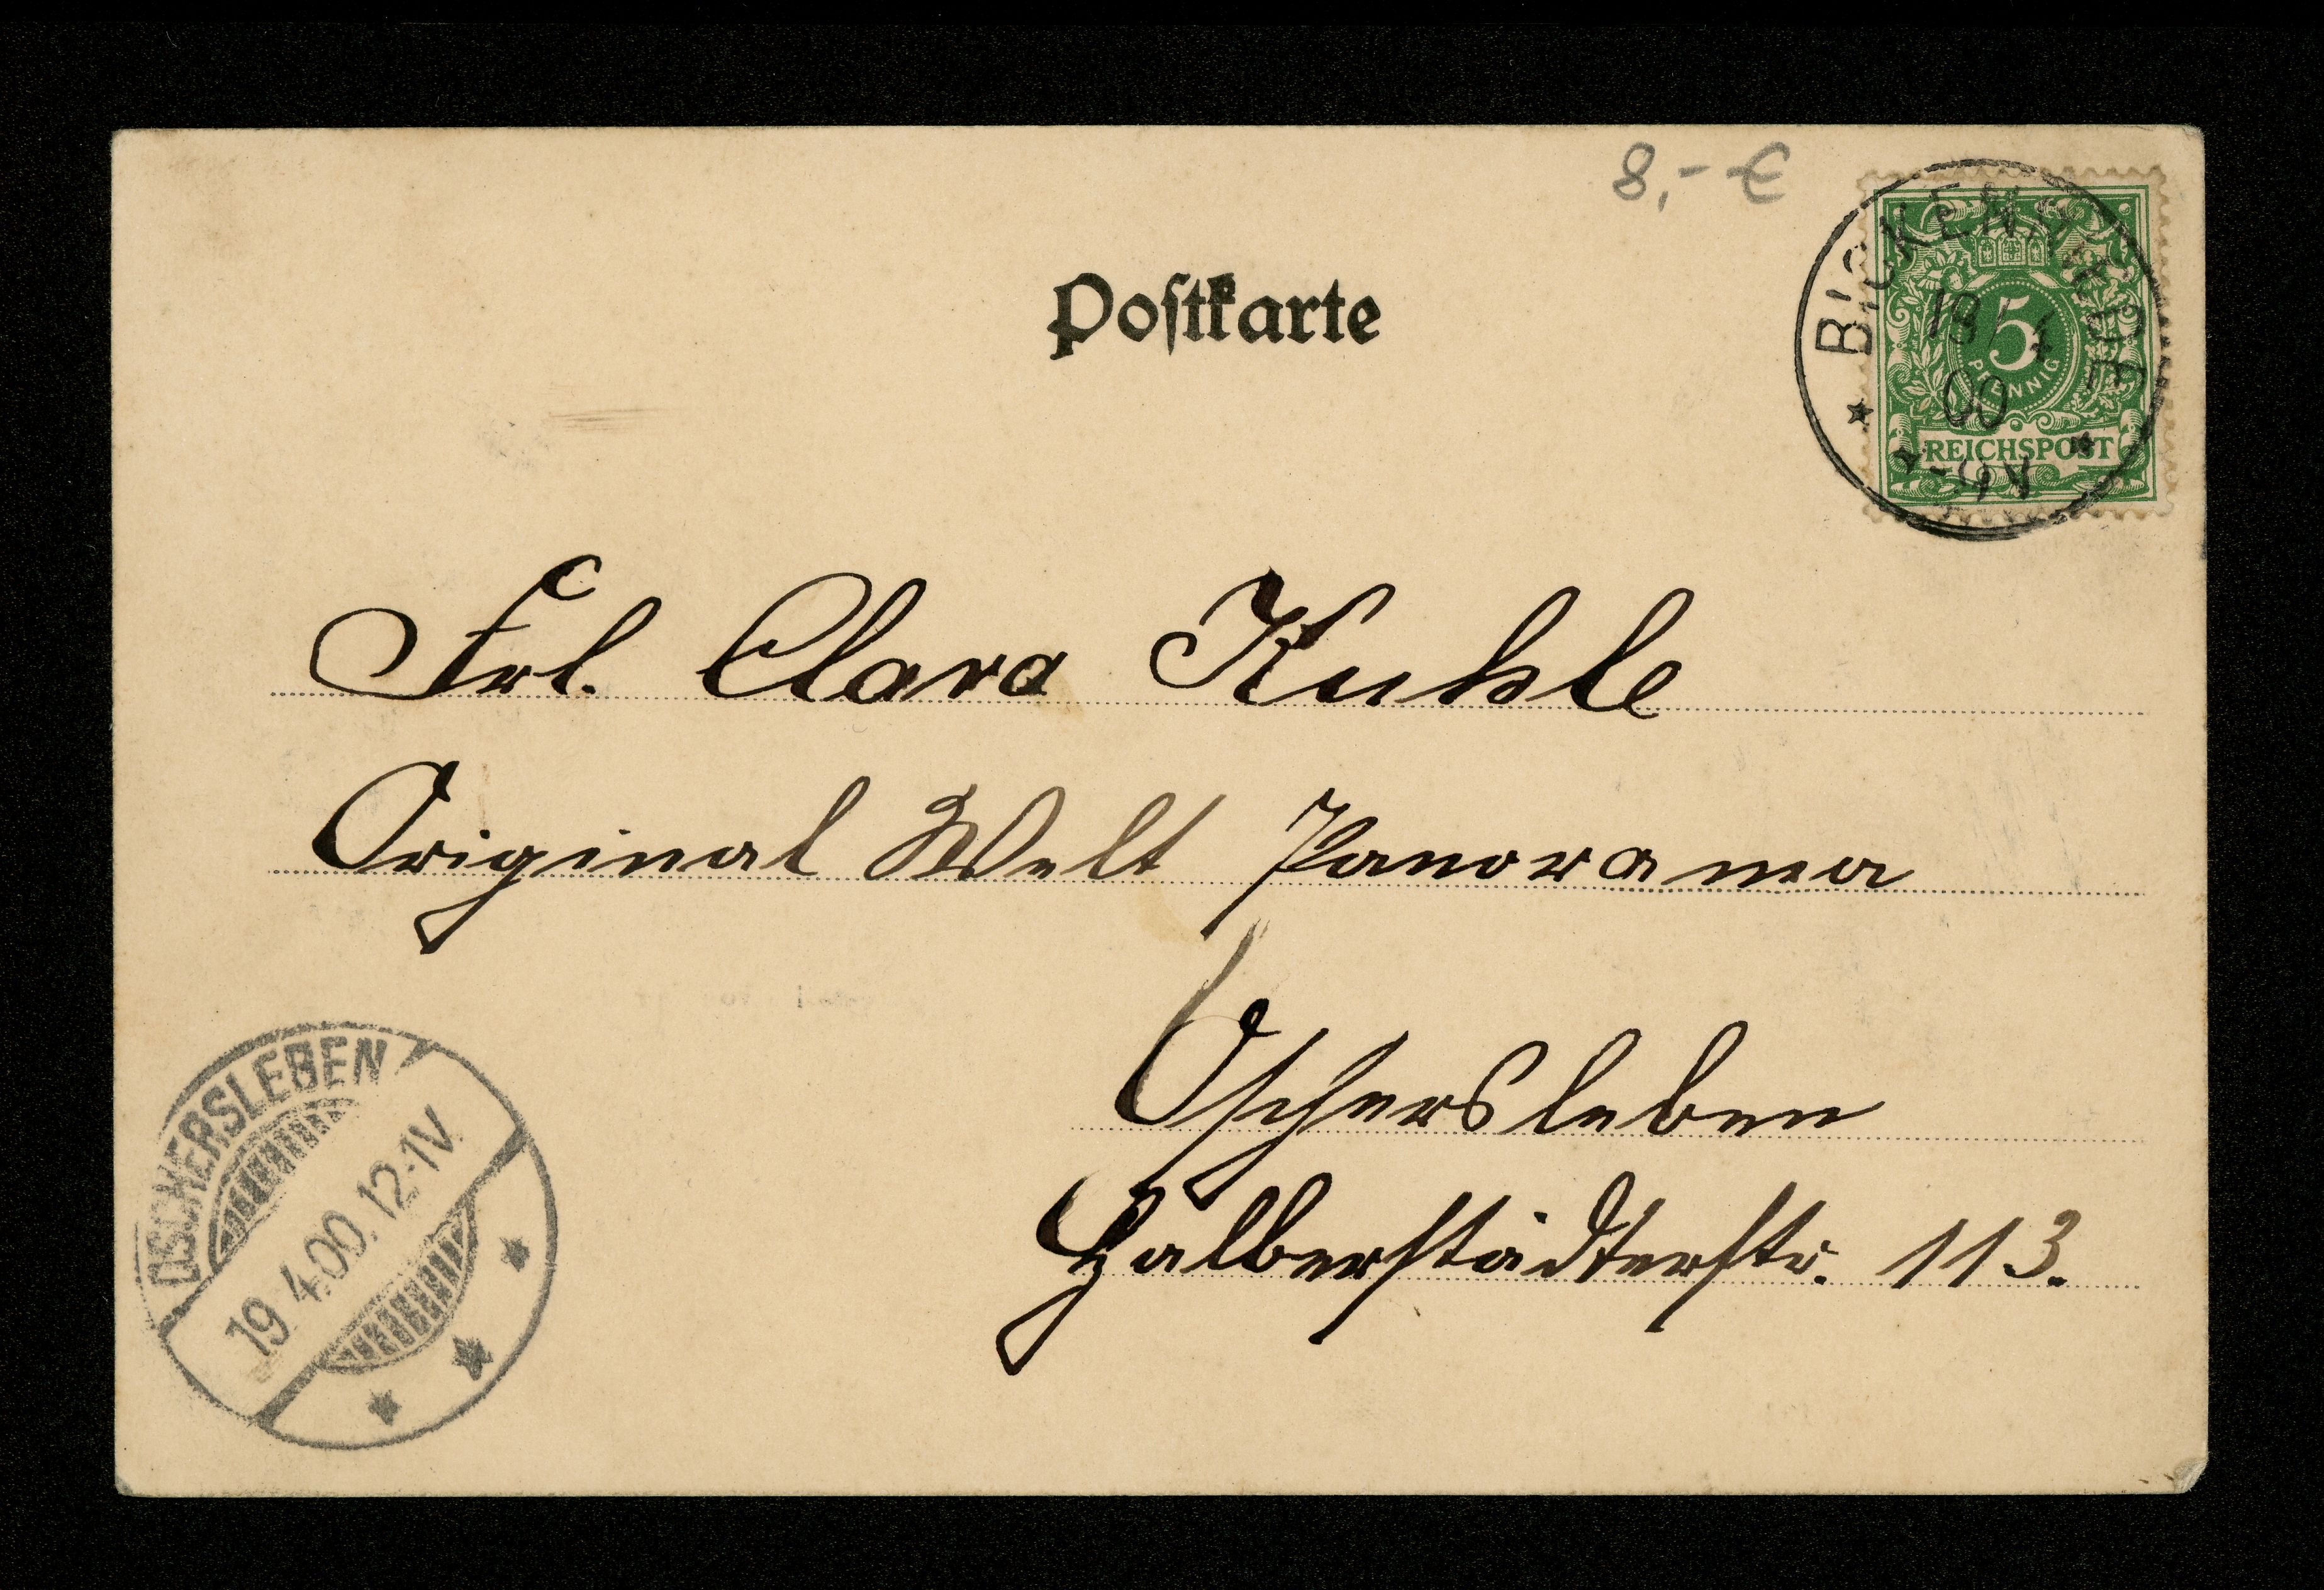 8,- €
Postkarte
BICKENRIEDE
18/4
00
5
PFENNIG
REICHSPOST
Frl. Clara Kuhle
Original Welt Panorama
Oschersleben
Halberstädterstr. 113.
OSCHERSLEBEN
19 4.00. 12-1V.